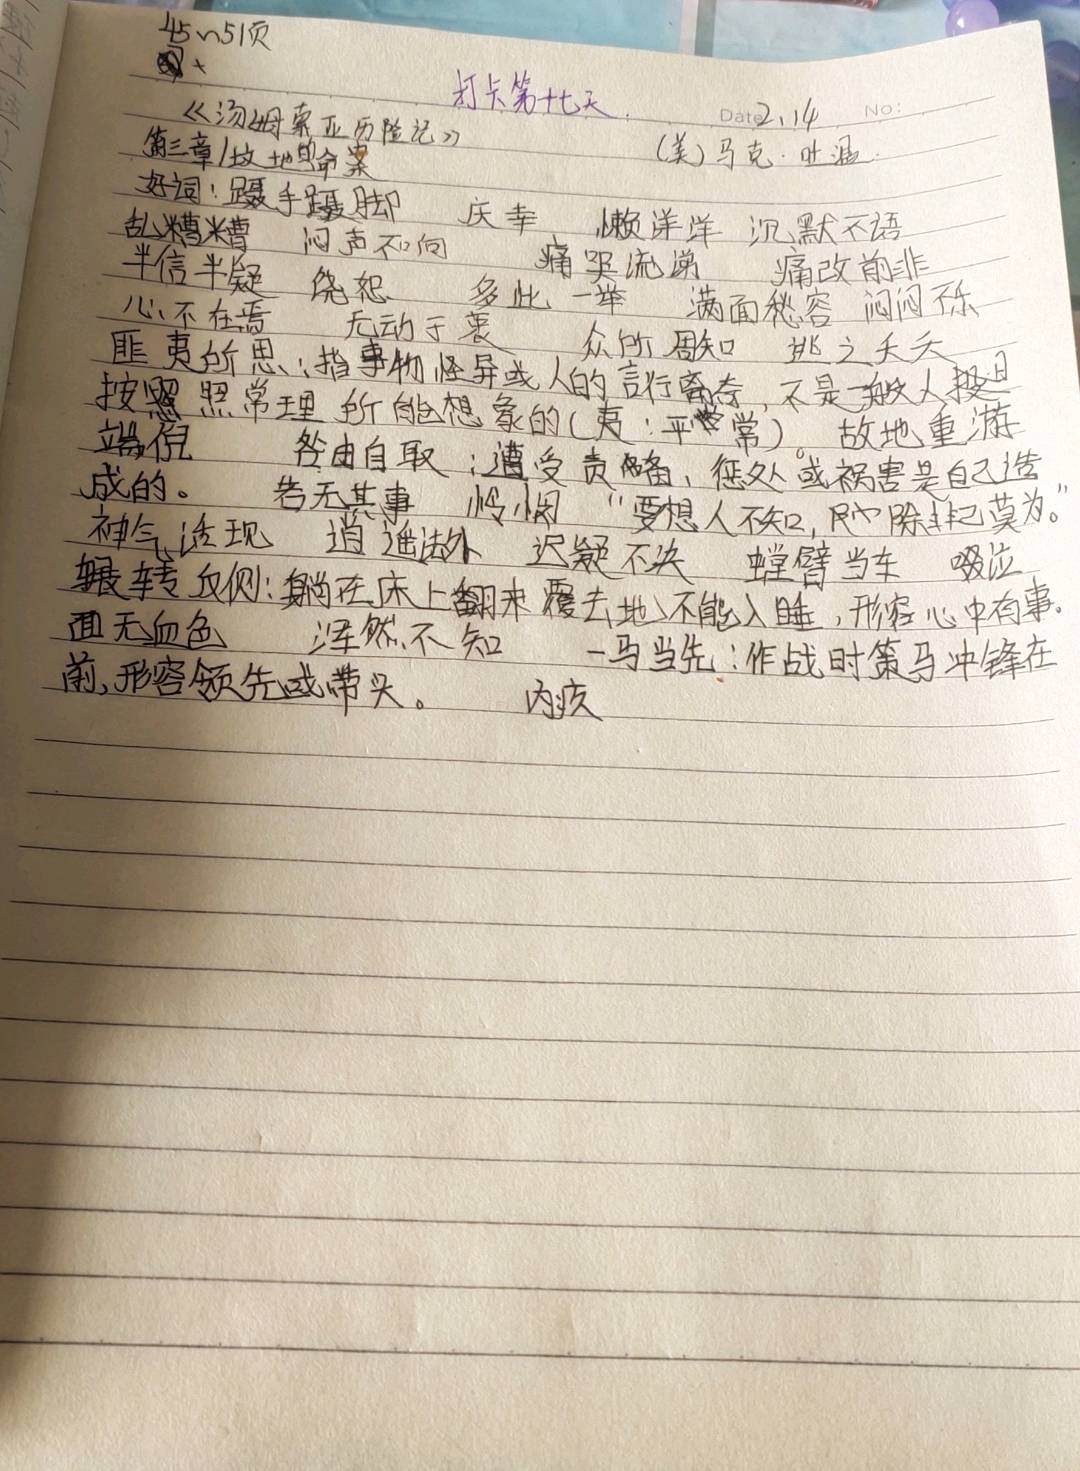 45~51页
打卡第十七天
Date 2.14 No:
《汤姆索亚历险记》
(美)马克·吐温
第三章/坟地的命案
好词:蹑手蹑脚 庆幸 懒洋洋 沉默不语
乱糟糟 闷声不向 痛哭流涕 痛改前非
半信半疑 饶恕 多此一举 满面愁容 闷闷不乐
心不在焉 无动于衷 众所周知 逃之夭夭
匪夷所思:指事物怪异或人的言行离奇,不是一般人
按照照常理所能想象的(夷:平常)。故地重游
端倪 咎由自取:遭受责备,惩处或祸害是自己造
成的。 若无其事 怜悯 “要想人不知,除非己莫为。”
神气活现 逍遥法外 迟疑不决 螳臂当车 啜泣
辗转反侧:躺在床上翻来覆去地不能入睡,形容心中有事。
面无血色 浑然不知 一马当先:作战时策马冲锋在
前,形容领先或带头。 内疚